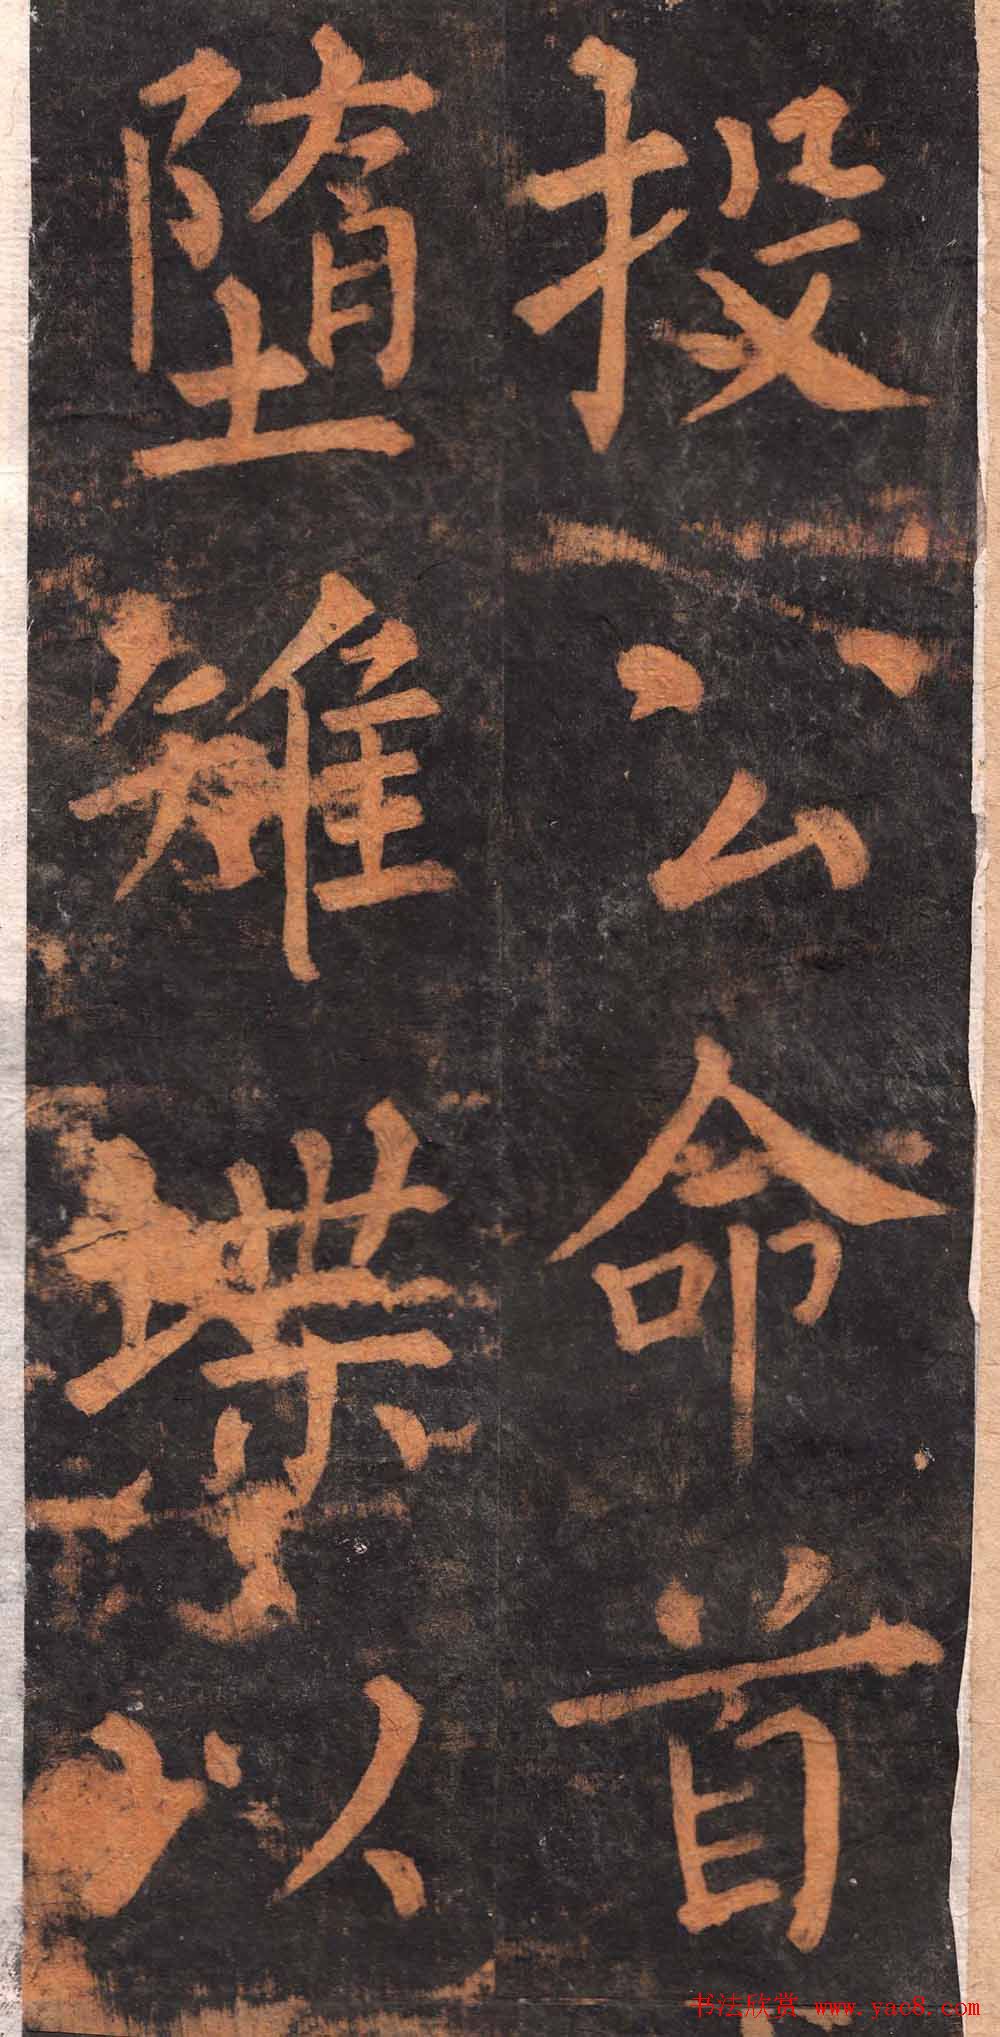 投公命首
堕雉堞以
书法欣赏 www.yac8.com